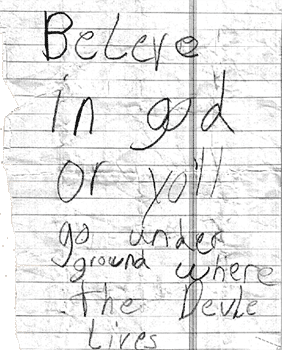 Beleve
in god
or yo'll
go under
ground where
The Devle
Lives